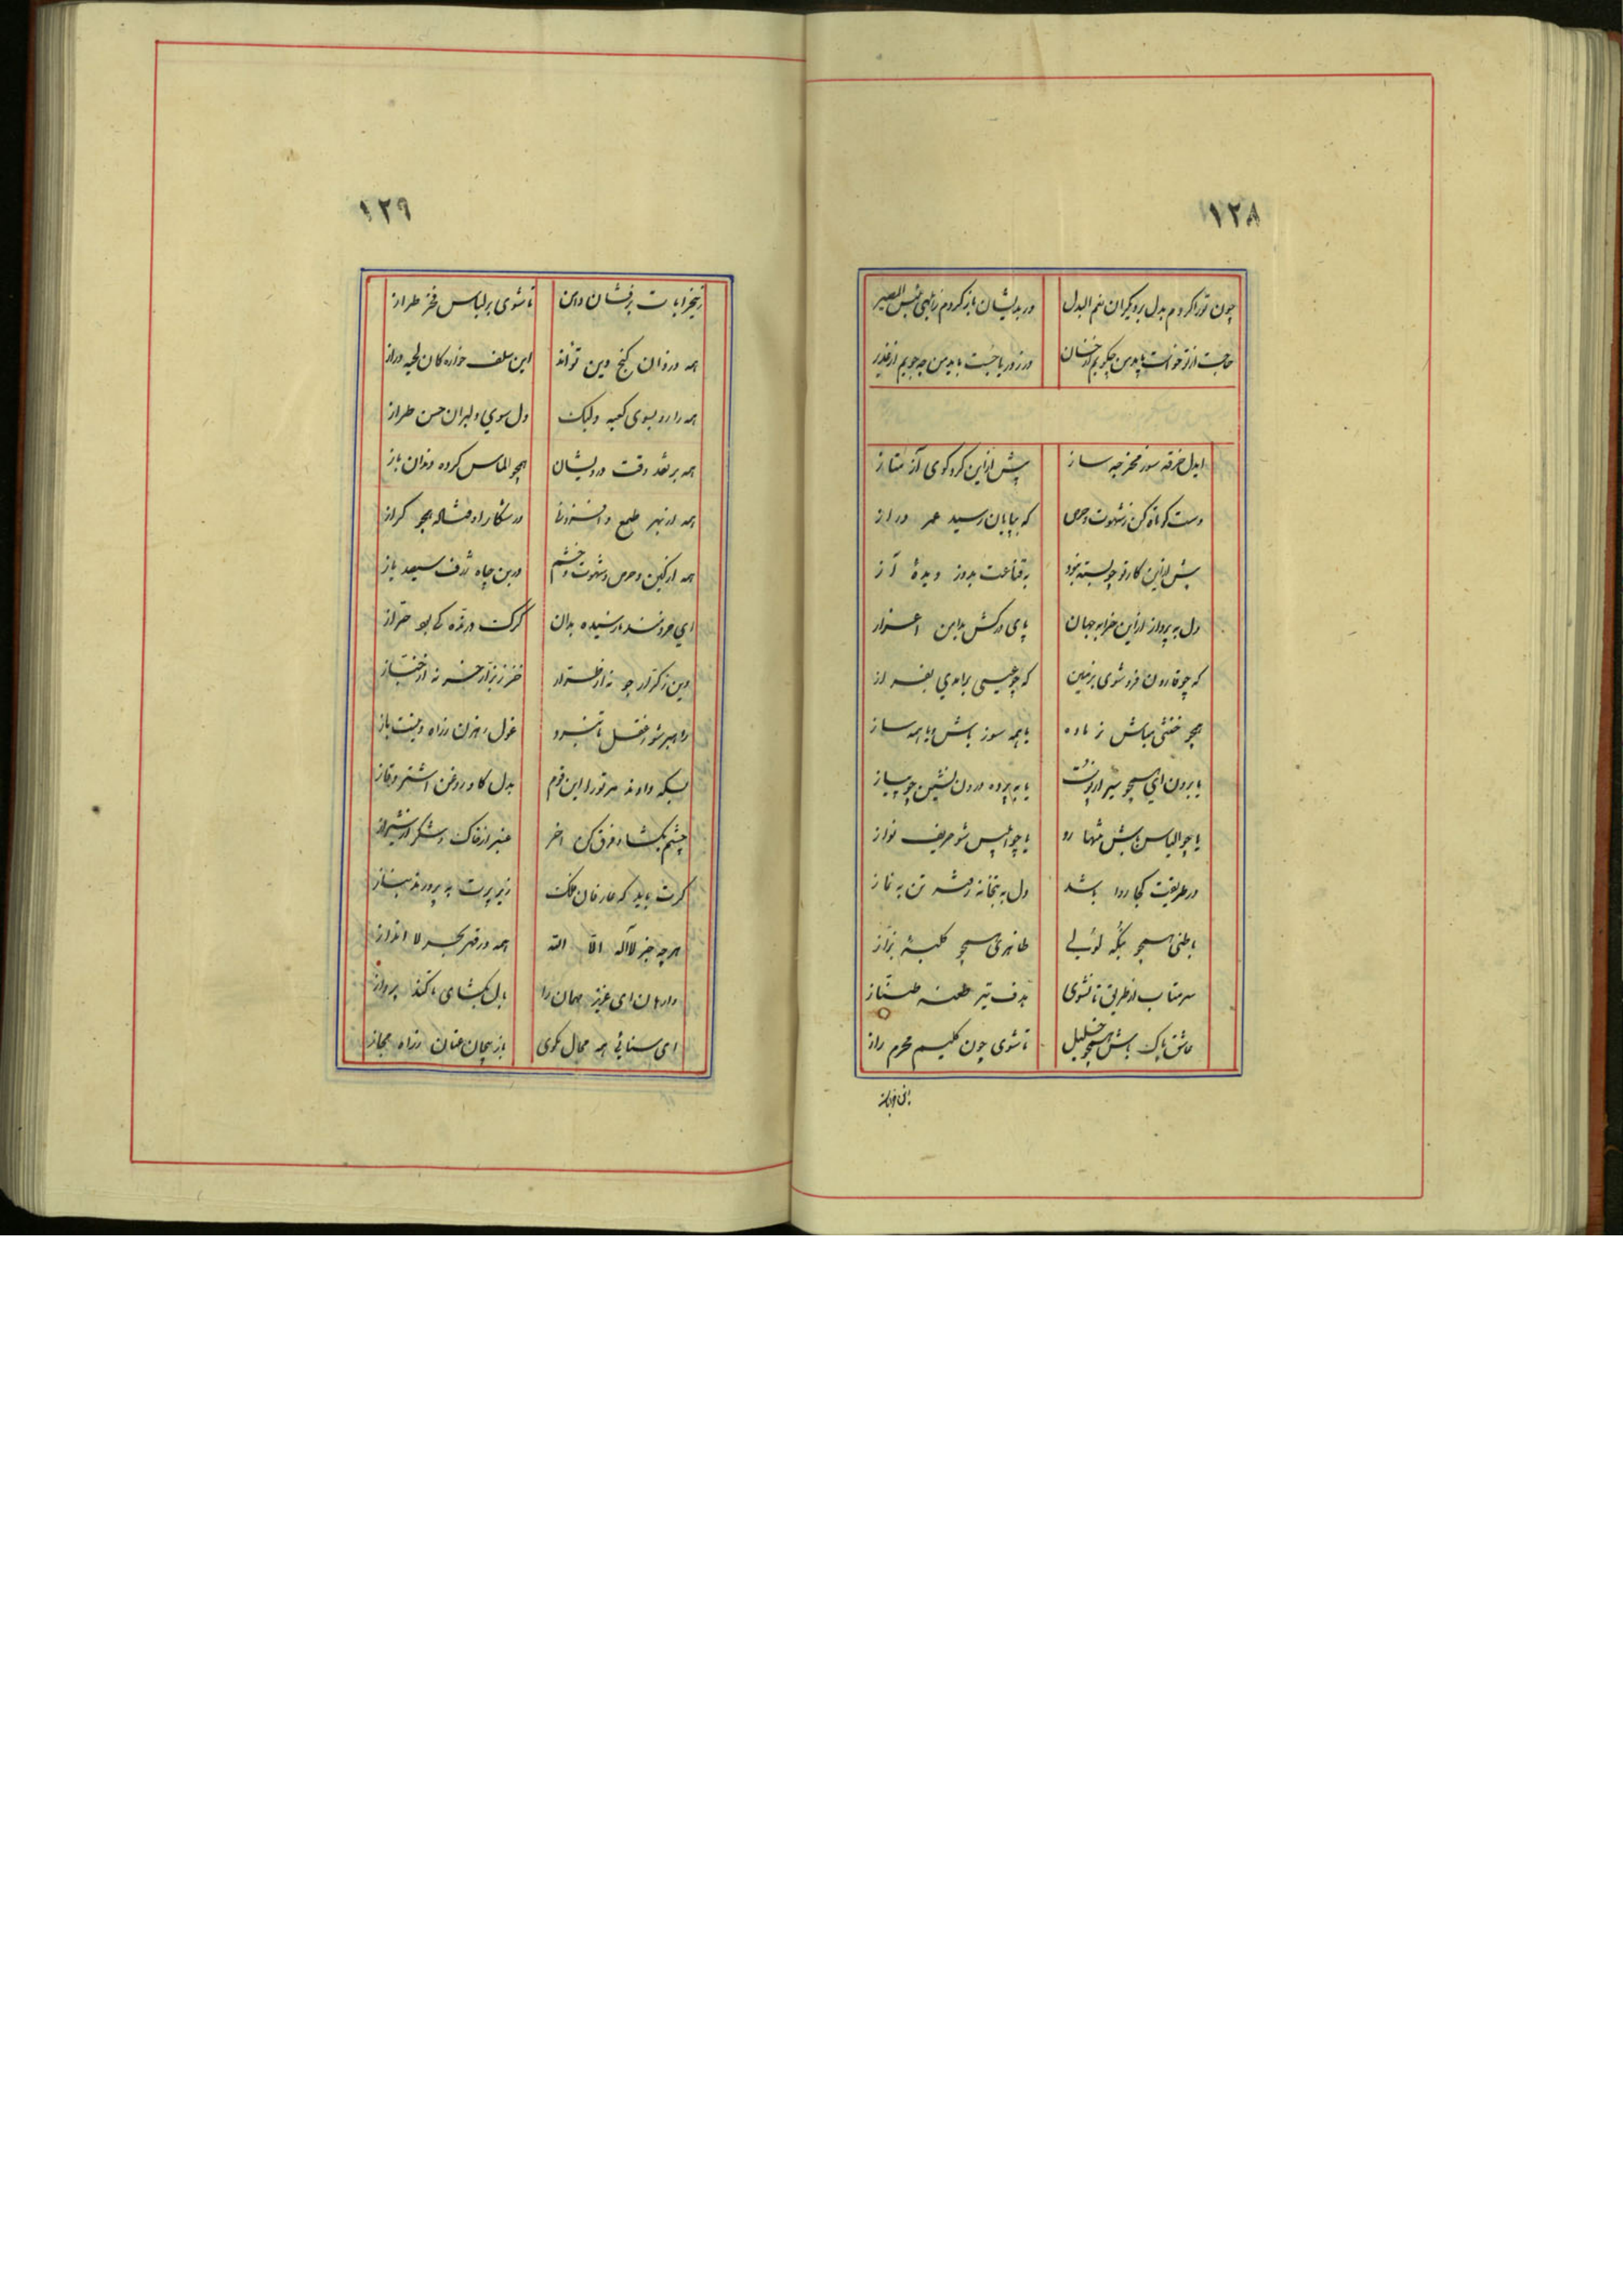 ۱۲۸
چون تو را کردم بدل بر دیگران نعم البدل در بدیشان باز گردم ز ابلهی بئس المصیر
حاجت از تو خواست باید من چگویم از خسان در ز دریا جست باید من چه جویم از غدیر
ایدل خرقه سوز مخرقه ساز پیش از این گرد کوی آز متاز
دست کوتاه کن ز شهوت و حرص که بپایان رسید عمر دراز
پیش از این کار تو چو بسته نبود به قناعت بدوز دیدهٔ آز
دل به پرداز از این خرابه جهان پای درکش بدامن اعزاز
که چو قارون فرو شوی بزمین که چو عیسی برآمدی بفراز
همچو خنثی مباش نر ماده یا همه سوز باش و یا همه ساز
یا برون آی همچو سیر از پوست یا به پرده درون نشین چو پیاز
یا چو الیاس باش تنها رو یا چو ابلیس شو حریف نواز
در طریقت کجا روا باشد دل به بتخانه رفته تن به نماز
باطنی همچو بنگه لولی ظاهری همچو کلبهٔ بزاز
سر متاب از طریق تا نشوی هدف تیر طعنه طناز
عاشق پاک باش همچو خلیل تا شوی چون کلیم محرم راز
۱۲۹
بر خرابات برفشان دامن تا شوی بر لباس فخر طراز
همه دزدان گنج دین تواند این سلف خواره کان لحیه دراز
همه را رو بسوی کعبه ولیک دل سوی دلبران حسن طراز
همه بر نقد وقت درویشان همچو الماس کرده دندان باز
همه از بهر طمع و افزونی در شکار اوفتاده همچو گراز
همه از کین و حرص و شهوت و خشم در بن چاه ژرف سیصد باز
ای خردمند نارسیده بدان گرگ درنده کی بود خراز
دین ز کرار جو نه از طرار خز ز بزاز خر نه از خباز
راهبر شو ز عقل تا نبرد غول رهزن ز راه دینت باز
بسکه دادند مر تو را این قوم بدل گاو روغن اشتر غاز
چشم بگشا و فرق کن آخر عنبر از خاک و شکر از شیراز
گرت باید که عارفان فلک زیر پرت به پرورند بناز
هر چه جز لا اله الا الله همه در قعر بحر لا انداز
وارهان ای عزیز مهمان را بال بگشای تا کند پرواز
ای سنائی همه محال مگوی باز پیچان عنان ز راه مجاز